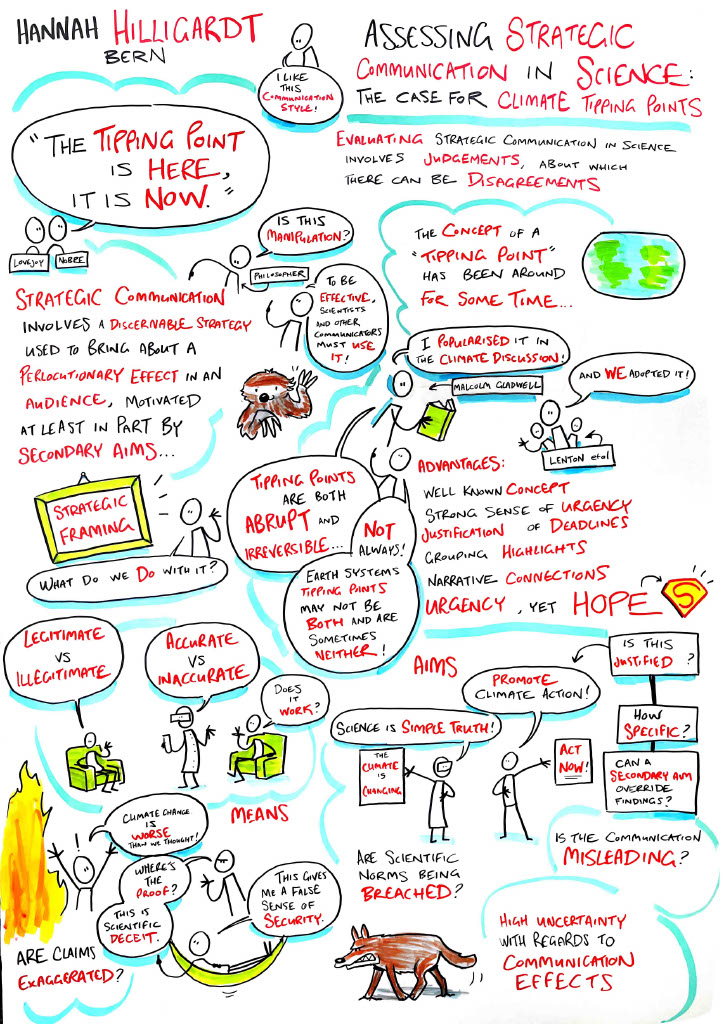 HANNAH HILLIGARDT
BERN
I LIKE
THIS
COMMUNICATION
STYLE!
ASSESSING STRATEGIC
COMMUNICATION IN SCIENCE:
THE CASE FOR CLIMATE TIPPING POINTS
EVALUATING STRATEGIC COMMUNICATION IN SCIENCE
INVOLVES JUDGEMENTS, ABOUT WHICH
THERE CAN BE DISAGREEMENTS
"THE TIPPING POINT
IS HERE,
IT IS NOW."
LOVEJOY
NOBRE
IS THIS
MANIPULATION?
PHILOSOPHER
TO BE
EFFECTIVE,
SCIENTISTS
AND OTHER
COMMUNICATORS
MUST USE
IT!
STRATEGIC COMMUNICATION
INVOLVES A DISCERNABLE STRATEGY
USED TO BRING ABOUT A
PERLOCUTIONARY EFFECT IN AN
AUDIENCE, MOTIVATED
AT LEAST IN PART BY
SECONDARY AIMS...
THE CONCEPT OF A
"TIPPING POINT"
HAS BEEN AROUND
FOR SOME TIME...
I POPULARISED IT IN
THE CLIMATE DISCUSSION!
MALCOLM GLADWELL
AND WE ADOPTED IT!
LENTON et al
STRATEGIC
FRAMING
WHAT DO WE DO WITH IT?
TIPPING POINTS
ARE BOTH
ABRUPT AND
IRREVERSIBLE...
NOT
ALWAYS!
EARTH SYSTEMS
TIPPING POINTS
MAY NOT BE
BOTH AND ARE
SOMETIMES
NEITHER!
ADVANTAGES:
WELL KNOWN CONCEPT
STRONG SENSE OF URGENCY
JUSTIFICATION OF DEADLINES
GROUPING HIGHLIGHTS
NARRATIVE CONNECTIONS
URGENCY, YET HOPE
S
LEGITIMATE
VS
ILLEGITIMATE
ACCURATE
VS
INACCURATE
DOES
IT
WORK?
MEANS
CLIMATE CHANGE
IS
WORSE
THAN WE THOUGHT!
WHERE'S
THE
PROOF?
THIS IS
SCIENTIFIC
DECEIT.
THIS GIVES
ME A FALSE
SENSE OF
SECURITY.
ARE CLAIMS
EXAGGERATED?
AIMS
SCIENCE IS SIMPLE TRUTH!
THE
CLIMATE
IS
CHANGING
PROMOTE
CLIMATE ACTION!
ACT
NOW!
IS THIS
JUSTIFIED?
HOW
SPECIFIC?
CAN A
SECONDARY AIM
OVERRIDE
FINDINGS?
ARE SCIENTIFIC
NORMS BEING
BREACHED?
IS THE COMMUNICATION
MISLEADING?
HIGH UNCERTAINTY
WITH REGARDS TO
COMMUNICATION
EFFECTS